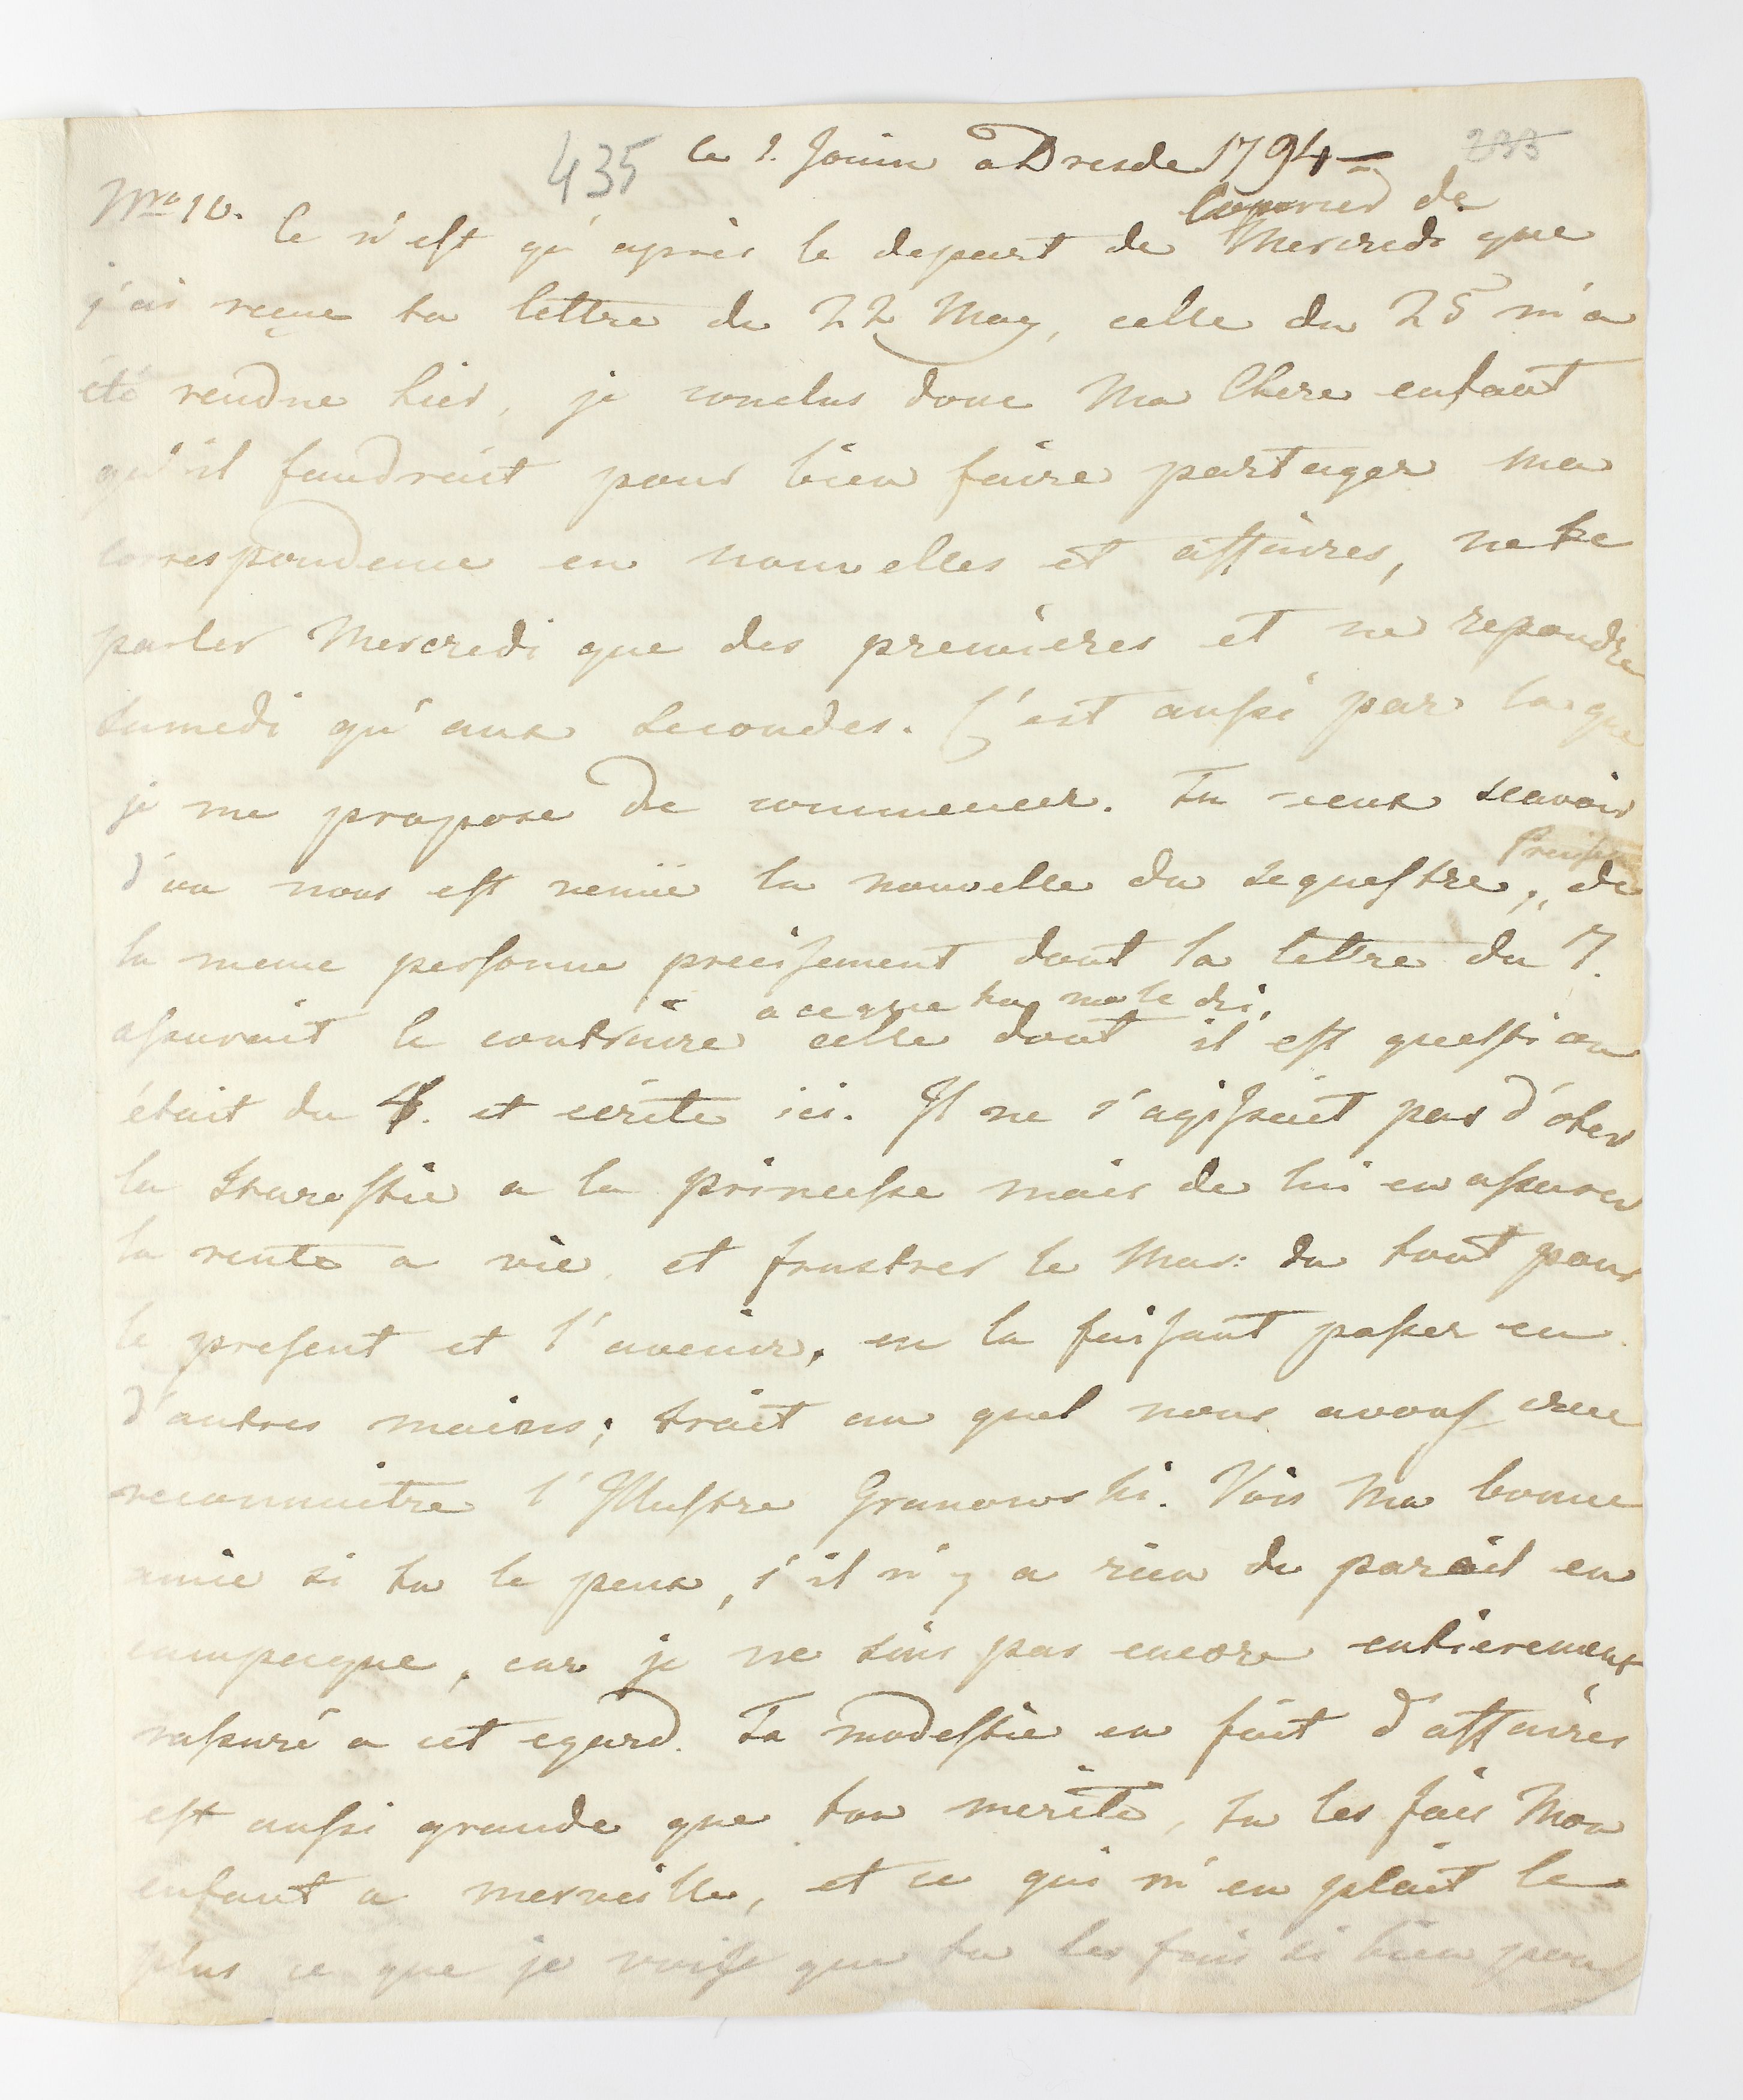 435 le 1. Jouin a Dresde 1794 – 233
Nro 10. Ce n'est qu'apres le depart de Mercredi que
Courier de
j'ai reçue ta lettre du 22 May, celle du 25 m'a
été rendue hier, je conclus donc Ma Chere enfant
qu'il faudrait pour bien faire partager ma
correspondence en nouvelles et affaires, ne te
parler Mercredi que des premieres et ne repondre
samedi qu'aux secondes. C'est aussi par la que
je me propose de commencer. Tu veux scavoir
d'ou nous est venüe la nouvelle du sequestre, de
la meme personne precisement dont la lettre du 7.
a ce que tu me le dis,
assurait le contraire celle dont il est question
était du 4. et ecrite ici. Il ne s'agissait pas d'oter
la Starostie a la princesse mais de lui en assurer
la rente a vie et frustrer le Mar: du tout pour
le present et l'avenir, en la faisant passer en
d'autres mains; trait au quel nous avons crue
reconnaitre l'Illustre Granowski. Vois Ma bonne
amie si tu le peux, s'il n'y a rien de pareil en
campagne, car je ne suis pas encore entierement
rassuré a cet egard. Ta modestie en fait d'affaires
est aussi grande que ton merite, tu les fais Mon
enfant a merveille, et ce qui m'en plait le
plus ce que je vois que tu les fais si bien pour